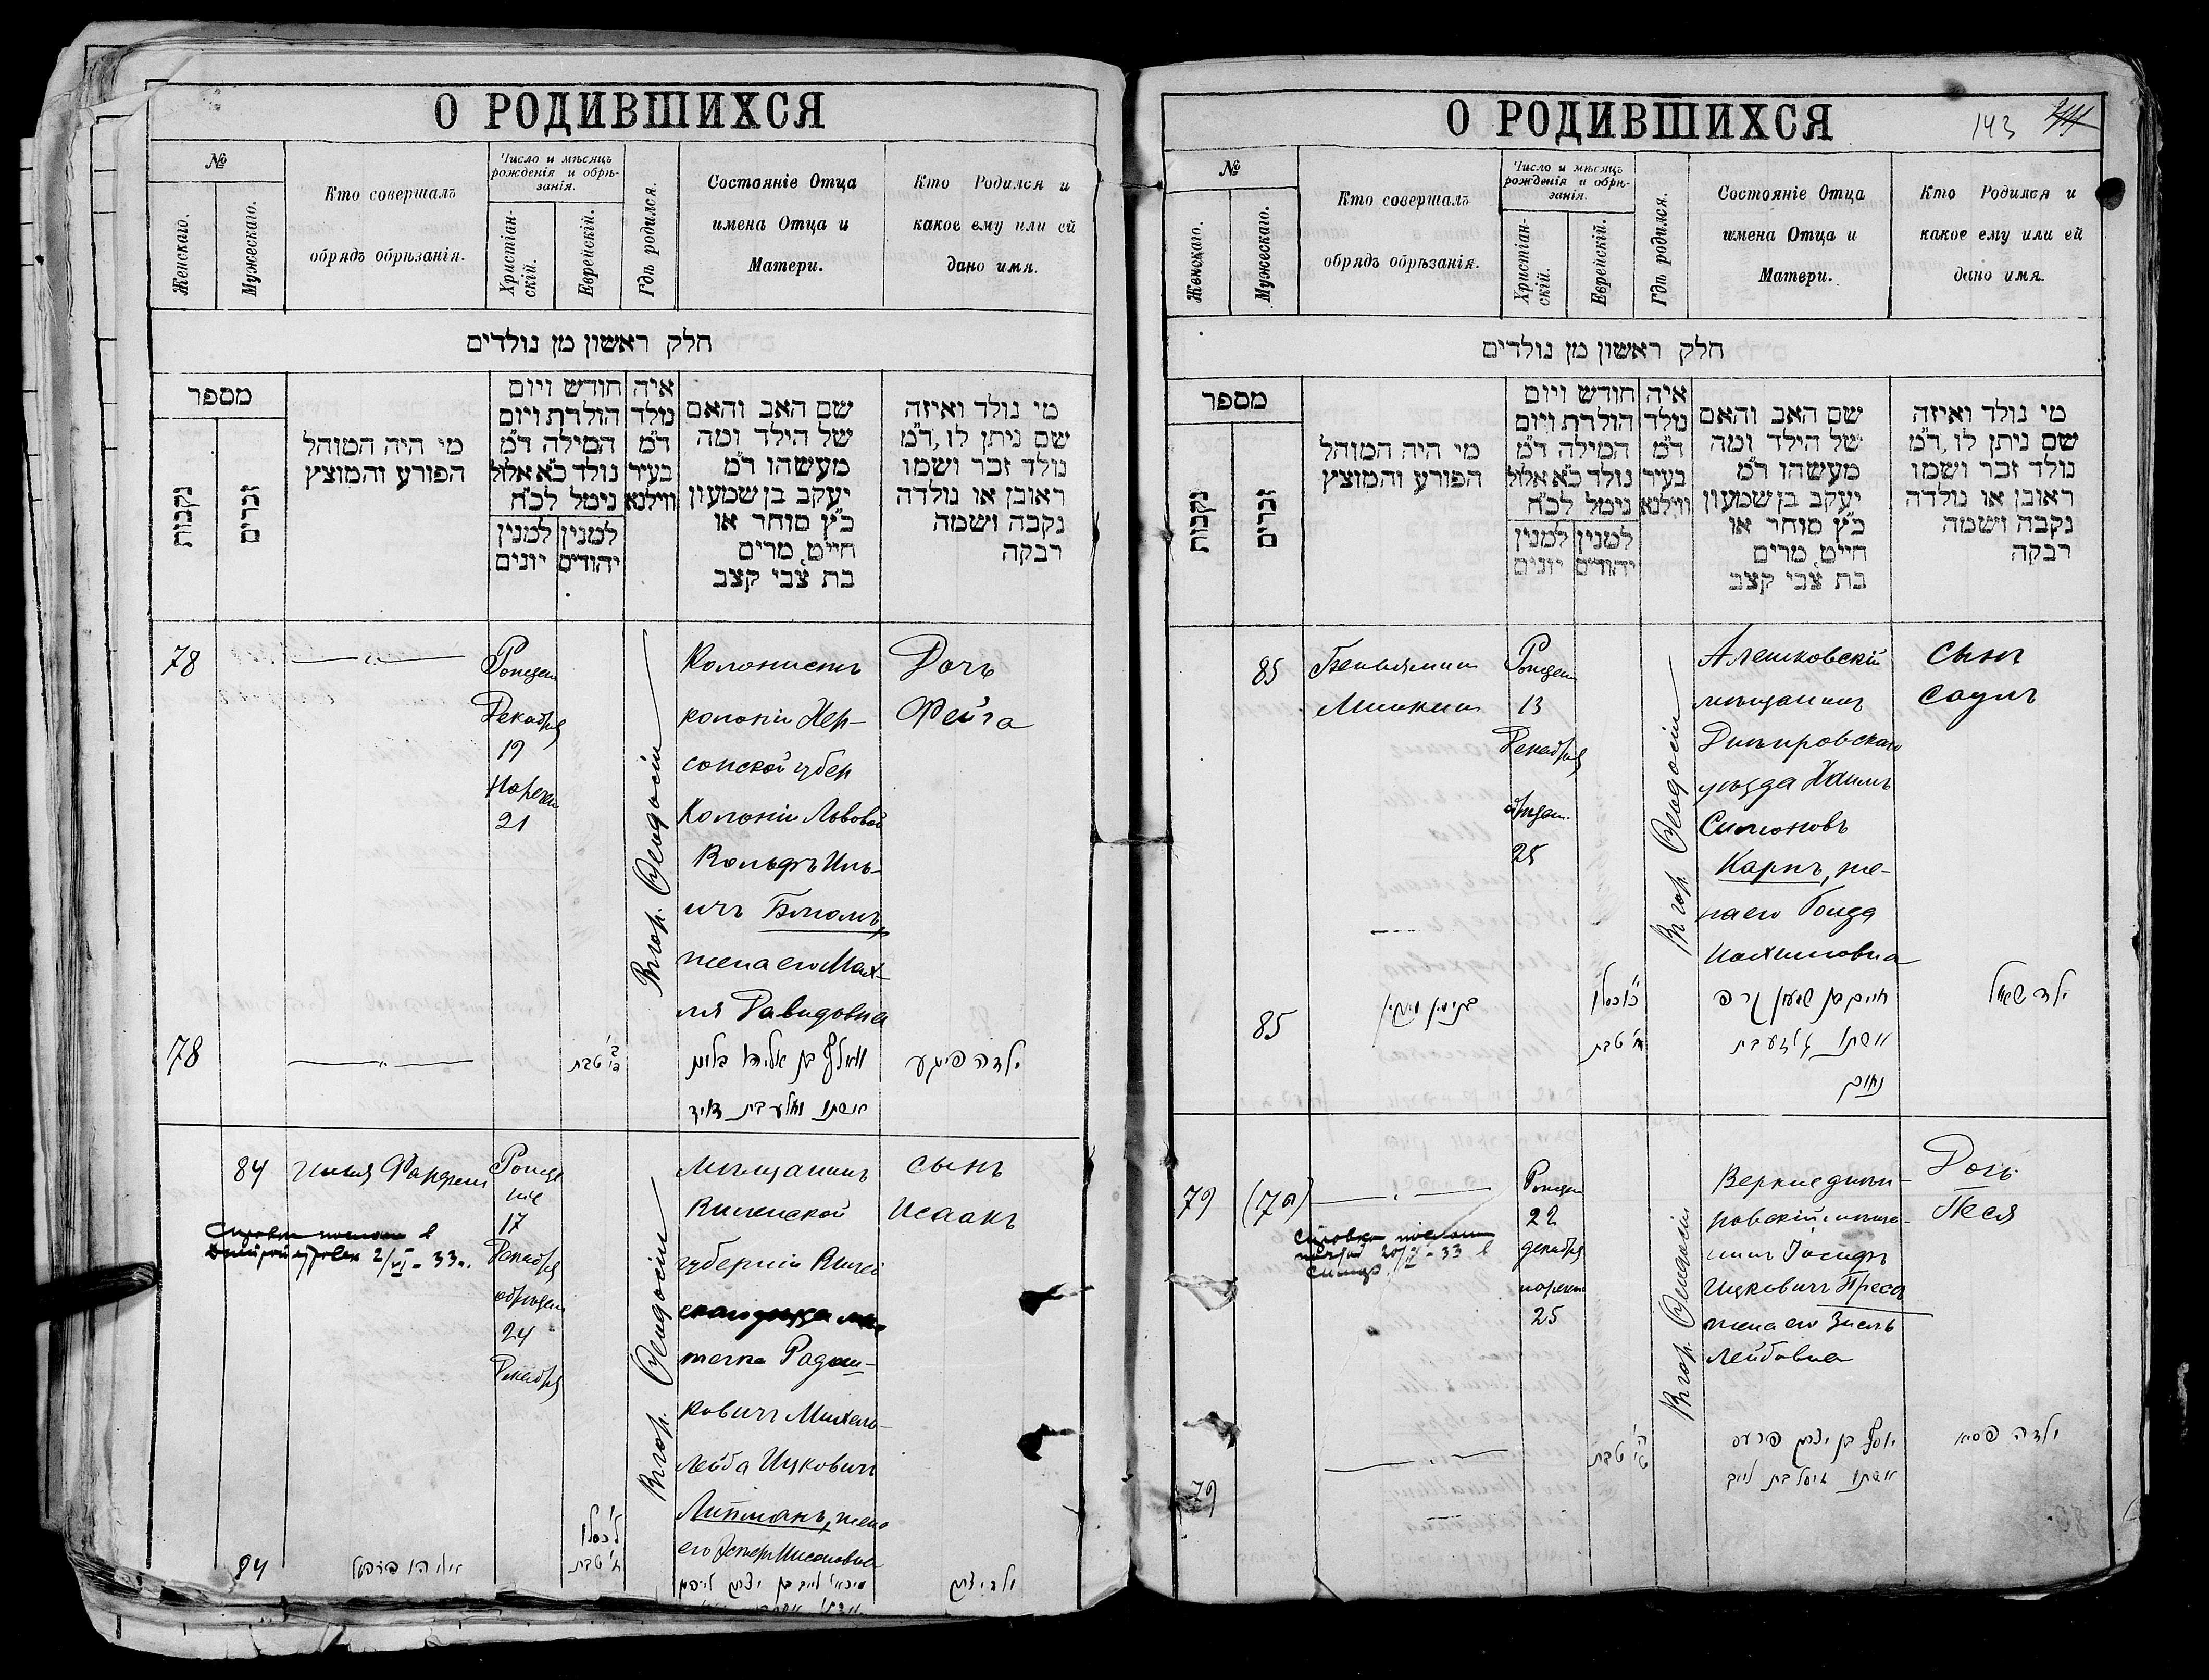 О РОДИВШИХСЯ
№
Женскаго.
Мужескаго.
Кто совершалъ
обрядъ обрѣзанія.
Число и мѣсяцъ
рожденія и обрѣ-
занія.
Христіан-
скій.
Еврейскій.
Гдѣ родился.
Состояніе Отца
имена Отца и
Матери.
Кто Родился и
какое ему или ей
дано имя.
חלק ראשון מן נולדים
מספר
נקבות
זכרים
מי היה המוהל
הפורע והמוצץ
חודש ויום
הולדת ויום
המילה ד״מ
נולד כ״א אלול
נימל לכ״ח
למנין
יונים
למנין
יהודים
איה
נולד
ד״מ
בעיר
ווילנא
שם האב והאם
של הילד ומה
מעשהו ד״מ
יעקב בן שמעון
כ״ץ סוחר או
חייט מרים
בת צבי קצב
מי נולד ואיזה
שם ניתן לו, ד״מ
נולד זכר ושמו
ראובן או נולדה
נקבה ושמה
רבקה
78
Рожден
Декабря
19
Нареч
21
В гор. Ѳеодосіи
Колонистъ
колоніи Хер-
сонской губер
Колоніи Львовой
Вольфъ Иль-
ичъ Блюмъ,
жена его Мах-
ля Давидовна
Дочь
Фейга
78
טבת
וואלף בן אליהו בלום
אשתו מאלע בת דוד
ילדה פייגע
84
Рожде
ніе
17
Декабря
обрѣзан
24
Декабря
2/VI - 33 г.
В гор. Ѳеодосіи
Мѣщанинъ
Виленской
губерніи Вилей
течка Радош-
ковичъ Михель-
Лейба Ицковичъ
Липманъ, жена
его
сынъ
Исаакъ
84
ל׳ כסלו
ח׳ טבת
מיכאל לייב בן יצחק ליפמן
ילד יצחק
О РОДИВШИХСЯ
143
№
Женскаго.
Мужескаго.
Кто совершалъ
обрядъ обрѣзанія.
Число и мѣсяцъ
рожденія и обрѣ-
занія.
Христіан-
скій.
Еврейскій.
Гдѣ родился.
Состояніе Отца
имена Отца и
Матери.
Кто Родился и
какое ему или ей
дано имя.
חלק ראשון מן נולדים
מספר
נקבות
זכרים
מי היה המוהל
הפורע והמוצץ
חודש ויום
הולדת ויום
המילה ד״מ
נולד כ״א אלול
נימל לכ״ח
למנין
יונים
למנין
יהודים
איה
נולד
ד״מ
בעיר
ווילנא
שם האב והאם
של הילד ומה
מעשהו ד״מ
יעקב בן שמעון
כ״ץ סוחר או
חייט מרים
בת צבי קצב
מי נולד ואיזה
שם ניתן לו, ד״מ
נולד זכר ושמו
ראובן או נולדה
נקבה ושמה
רבקה
85
Беньяминъ
Рожден
13
Декабря
обрѣзан.
25
В гор. Ѳеодосіи
Алешковскій
мѣщанинъ
Днѣпровскаго
уѣзда Хаимъ
Симоновъ
Карпъ, же-
на его
Нахимовна
сынъ
Саулъ
85
כ״ו כסלו
ח׳ טבת
חיים בן שמעון קרפ
אשתו בת
נחום
ילד שאול
79 (79)
Рожден
22
декабря
нареч
25
В гор. Ѳеодосіи
Верхнеднѣп-
ровскій мѣща-
нинъ Іосифъ
Ицковичъ Пресъ
жена его Зисль
Лейбовна
Дочь
Песя
79
טבת
יוסף בן יצחק פרעס
אשתו זיסל בת לייב
ילדה פסיא